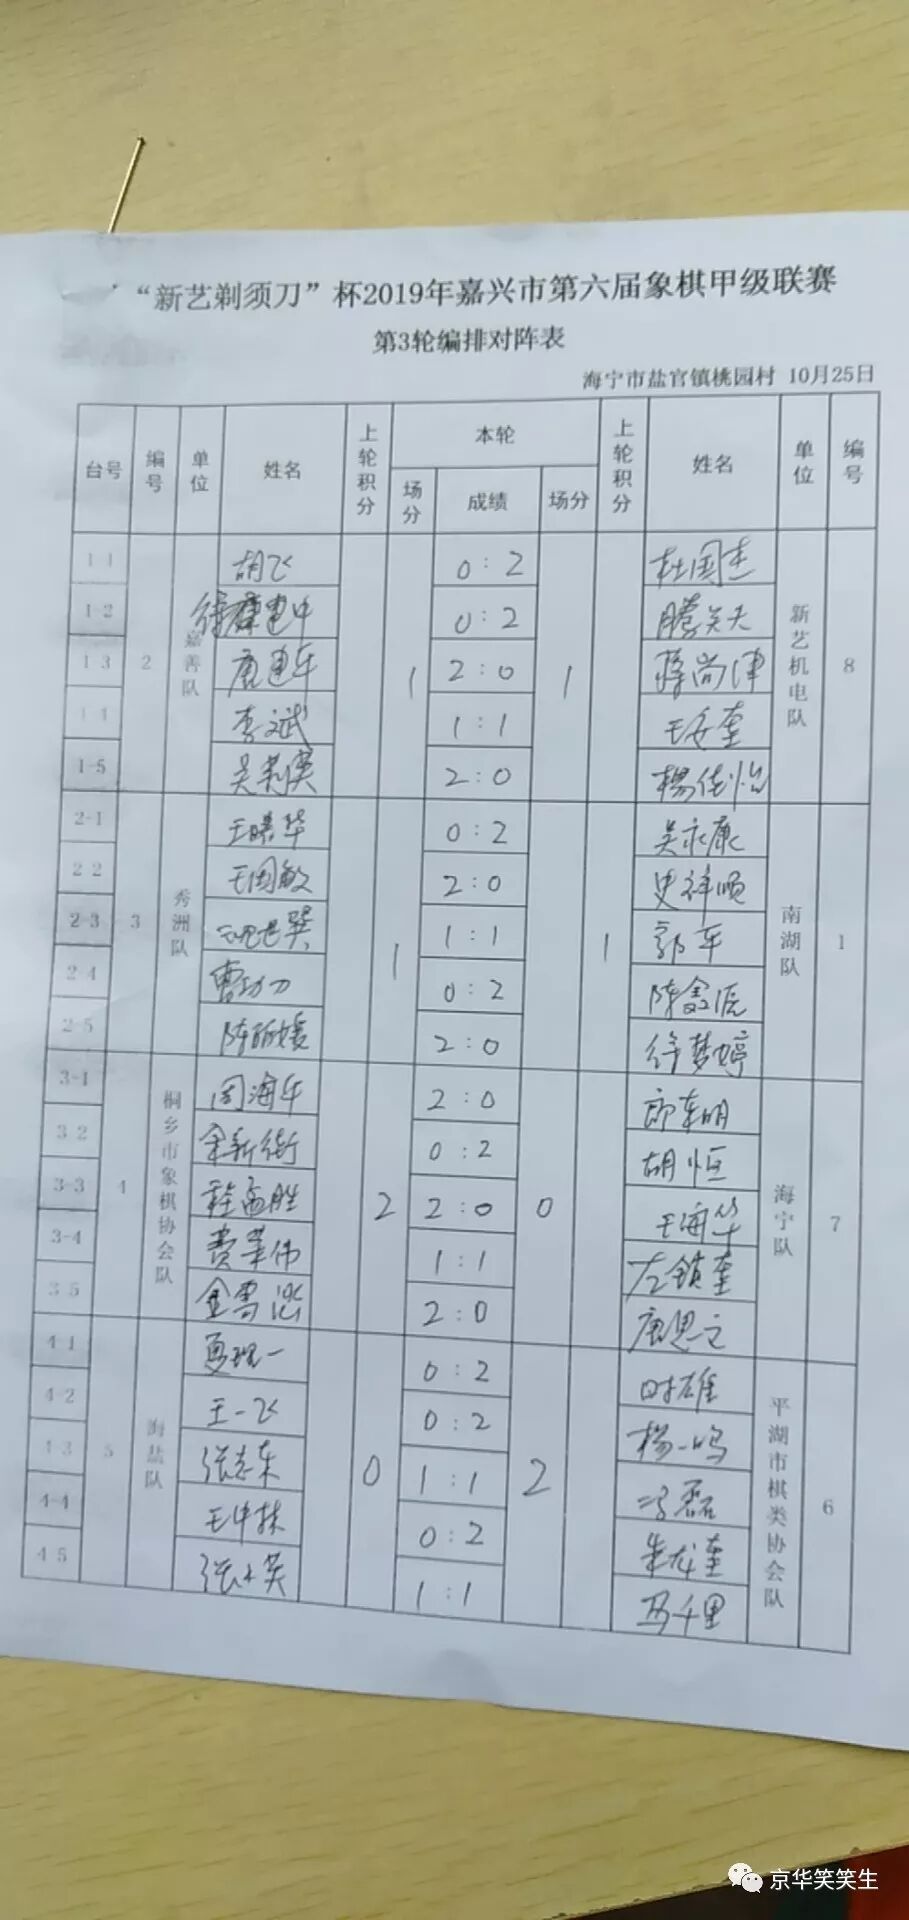 “新艺剃须刀”杯2019年嘉兴市第六届象棋甲级联赛
第3轮编排对阵表
海宁市盐官镇桃园村 10月25日
台号 编号 单位 姓名 上轮积分 本轮 上轮积分 姓名 单位 编号
场分 成绩 场分
1-1 胡飞 0:2 杜国杰
1-2 0:2 滕关夫
1-3 2 嘉善队 唐建华 1 2:0 1 蒋尚津 新艺机电队 8
1-4 李斌 1:1 王安奎
1-5 吴莉英 2:0 杨佳怡
2-1 王晓华 0:2 吴永康
2-2 王国敏 2:0 史祥顺
2-3 3 秀洲队 1 1:1 1 郭军 南湖队 1
2-4 0:2 陈鑫源
2-5 陈丽媛 2:0 徐梦婷
3-1 周海华 2:0 郎东明
3-2 余新街 0:2 胡恒
3-3 4 桐乡市象棋协会队 程孟胜 2 2:0 0 王海华 海宁队 7
3-4 费荣伟 1:1 左镇奎
3-5 2:0 唐思文
4-1 夏理一 0:2 时雄
4-2 王一飞 0:2 杨一鸣
4-3 5 海盐队 张志东 0 1:1 2 冯磊 平湖市棋类协会队 6
4-4 王中林 0:2 朱龙奎
4-5 张水英 1:1 马千里
京华笑笑生